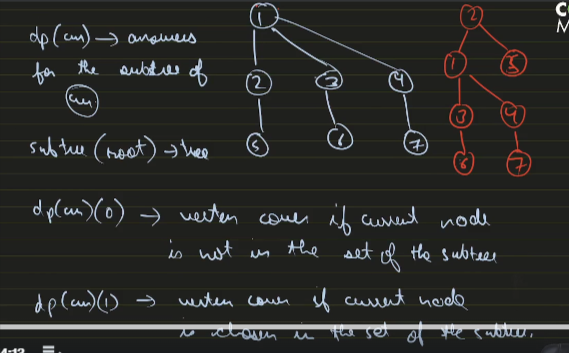 dp(cur) → answers
for the subtree of
cur
subtree (root) → tree
1
2 3 4
5 6 7
2
1 5
3 4
6 7
dp(cur)(0) → vertex cover if current node
is not in the set of the subtree
dp(cur)(1) → vertex cover if current node
is chosen in the set of the subtree.
C
M